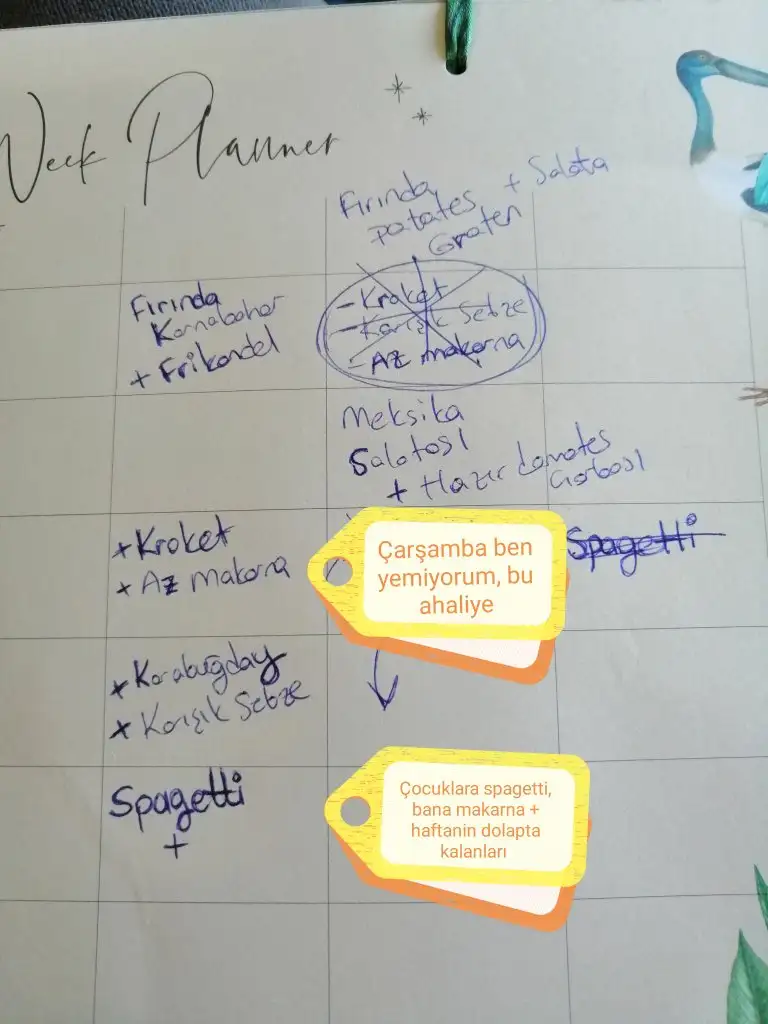 Week Planner
Fırında
patates + Salata
Graten
Fırında
Karnabahar
+ Frikandel
- Kroket
- Karışık Sebze
- Az makarna
Meksika
Salatası
+ Hazır domates
çorbası
+ Kroket
+ Az Makarna
Çarşamba ben
yemiyorum, bu
ahaliye
Spagetti
+ Karabuğday
+ Karışık Sebze
Spagetti
+
Çocuklara spagetti,
bana makarna +
haftanin dolapta
kalanları